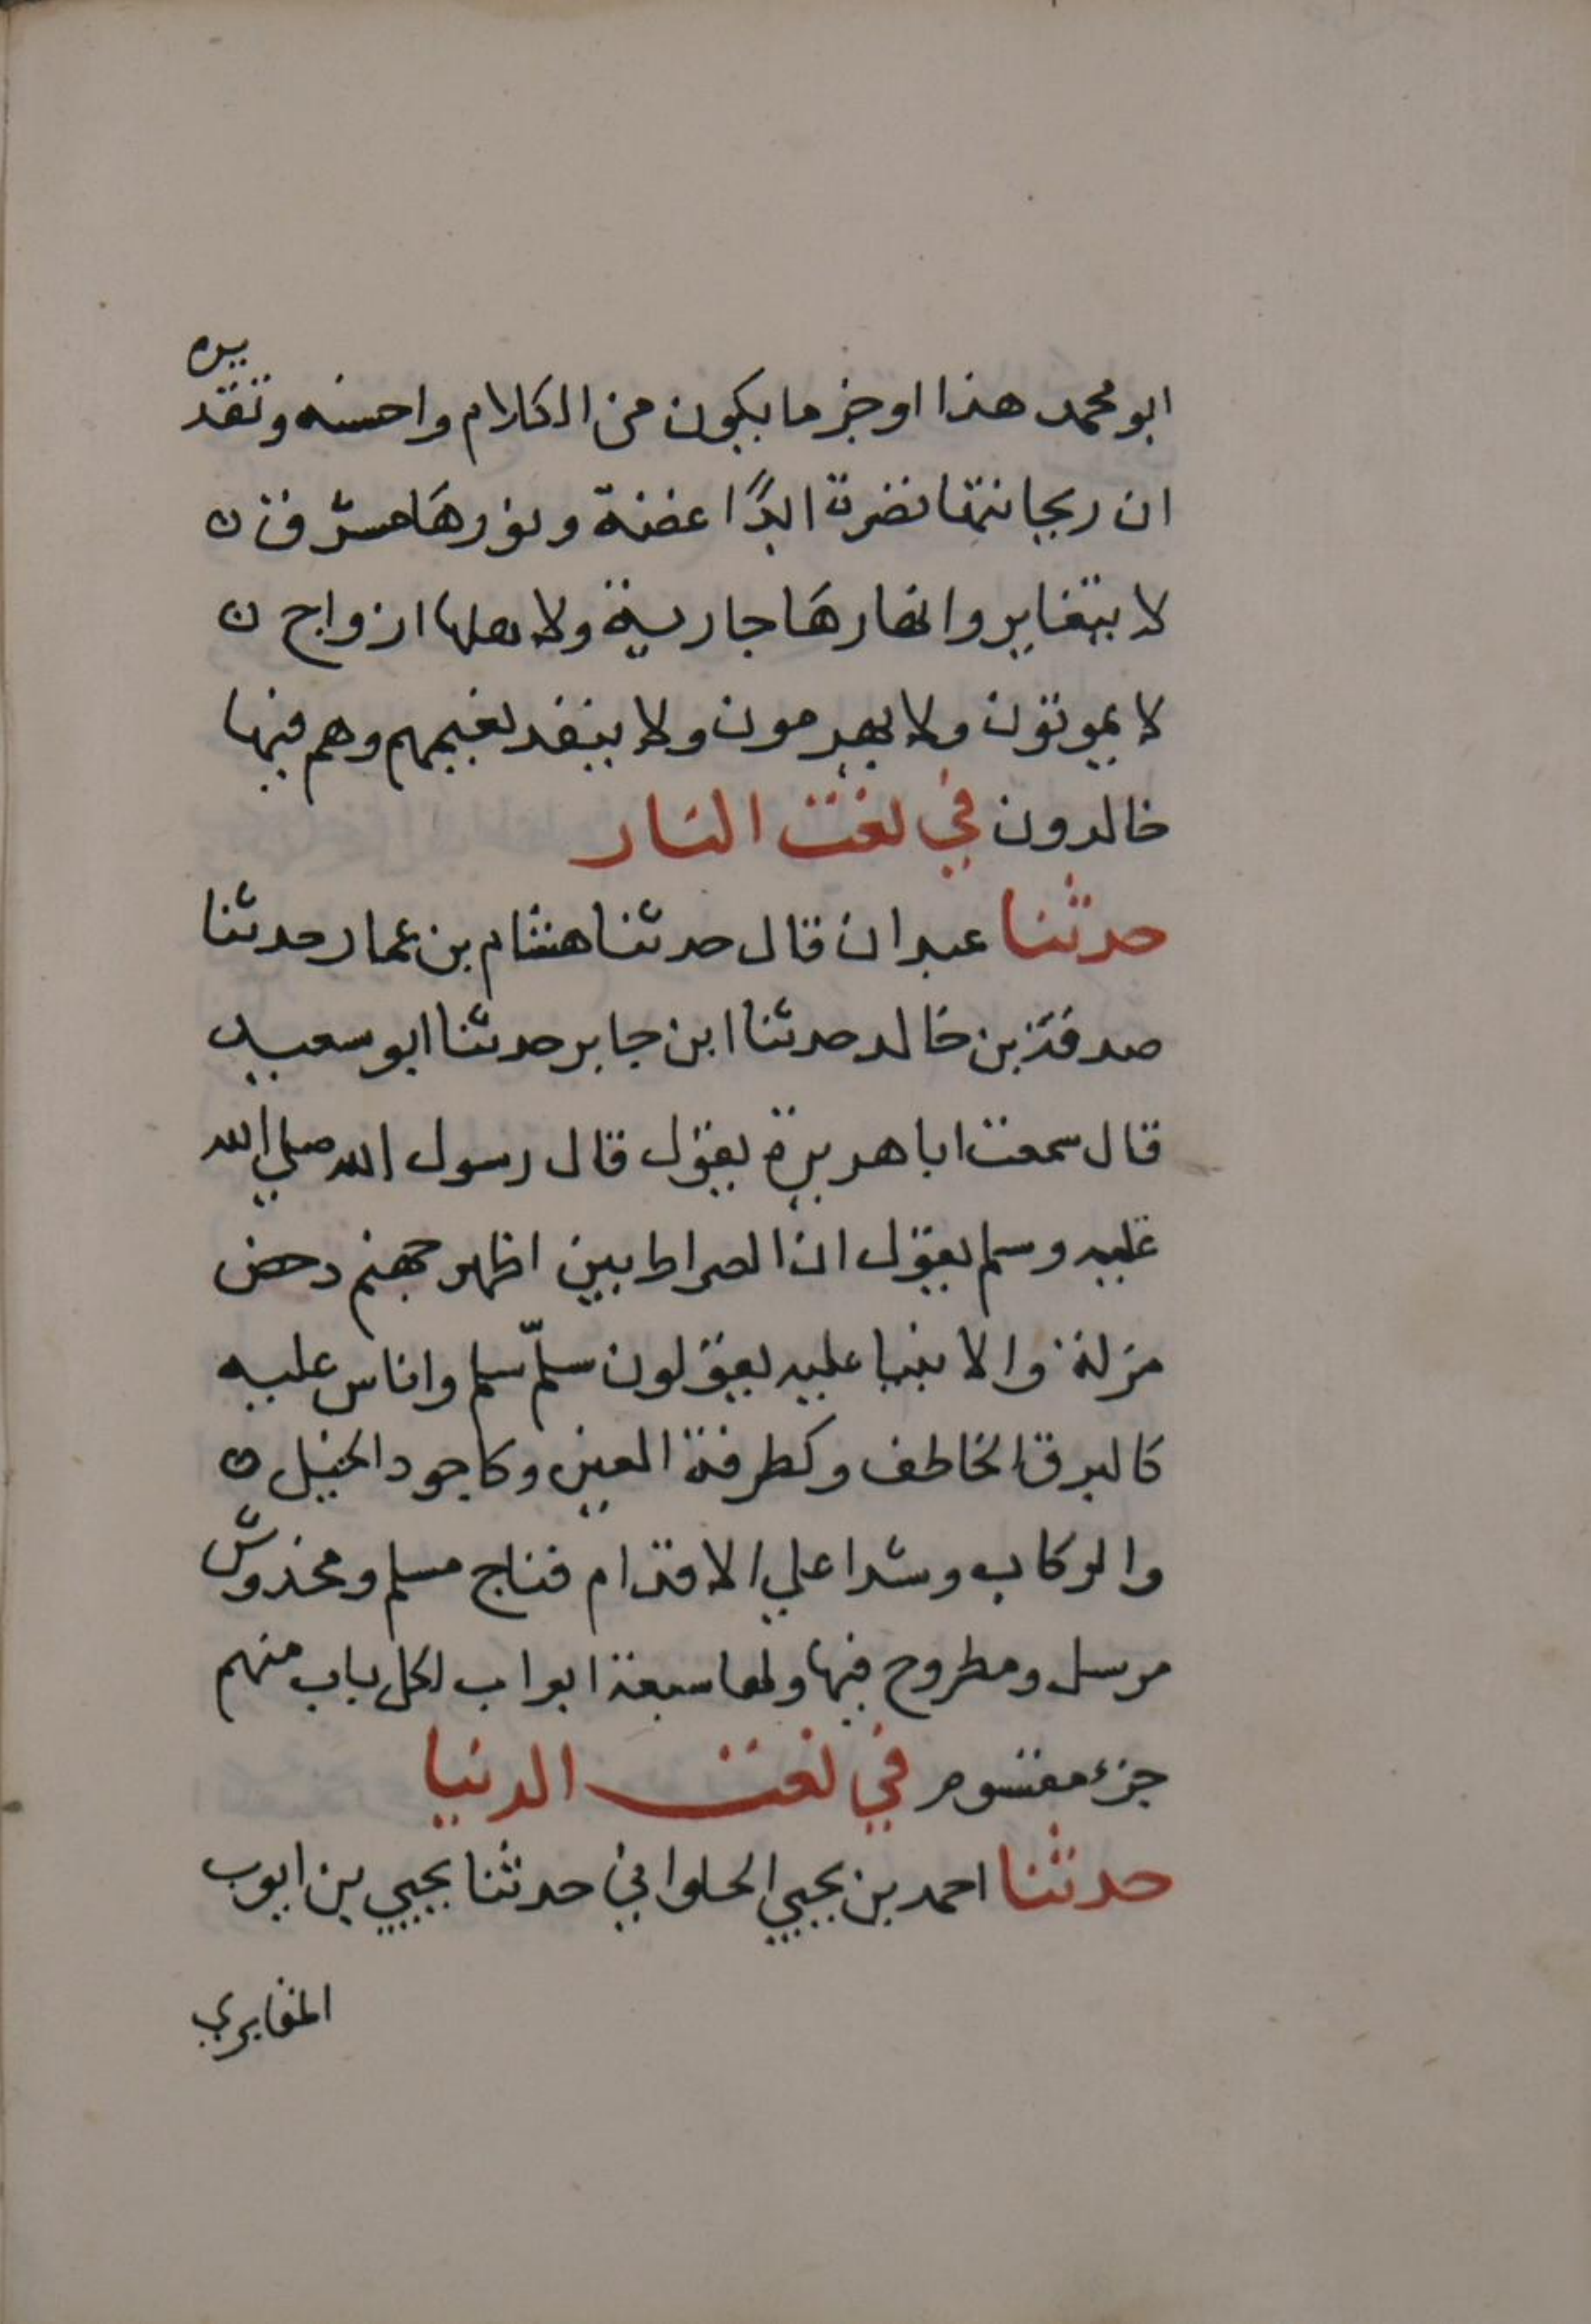 ابو محمد هذا اوجز ما يكون من الكلام واحسنه وتقديره
ان ريحانتها نضرة ابدًا غضة ونورها مشرق
لا يتغاير وانهارها جارية ولاهلها ازواج
لا يموتون ولا يهرمون ولا ينفد نعيمهم وهم فيها
خالدون في نعت النار
حدثنا عبدان قال حدثنا هشام بن عمار حدثنا
صدقة بن خالد حدثنا ابن جابر حدثنا ابو سعيد
قال سمعت ابا هريرة يقول قال رسول الله صلي الله
عليه وسلم يقول ان الصراط بين اظهر جهنم دحض
مزلة والانبيا عليه يقولون سلّم سلم واناس عليه
كالبرق الخاطف وكطرفة العين وكاجود الخيل
والركاب وشدا علي الاقدام فناج مسلم ومخدوش
مرسل ومطروح فيها ولها سبعة ابواب لكل باب منهم
جزء مقسوم في نعت الدنيا
حدثنا احمد بن يحيي الحلواني حدثنا يحيي بن ايوب
المقابري